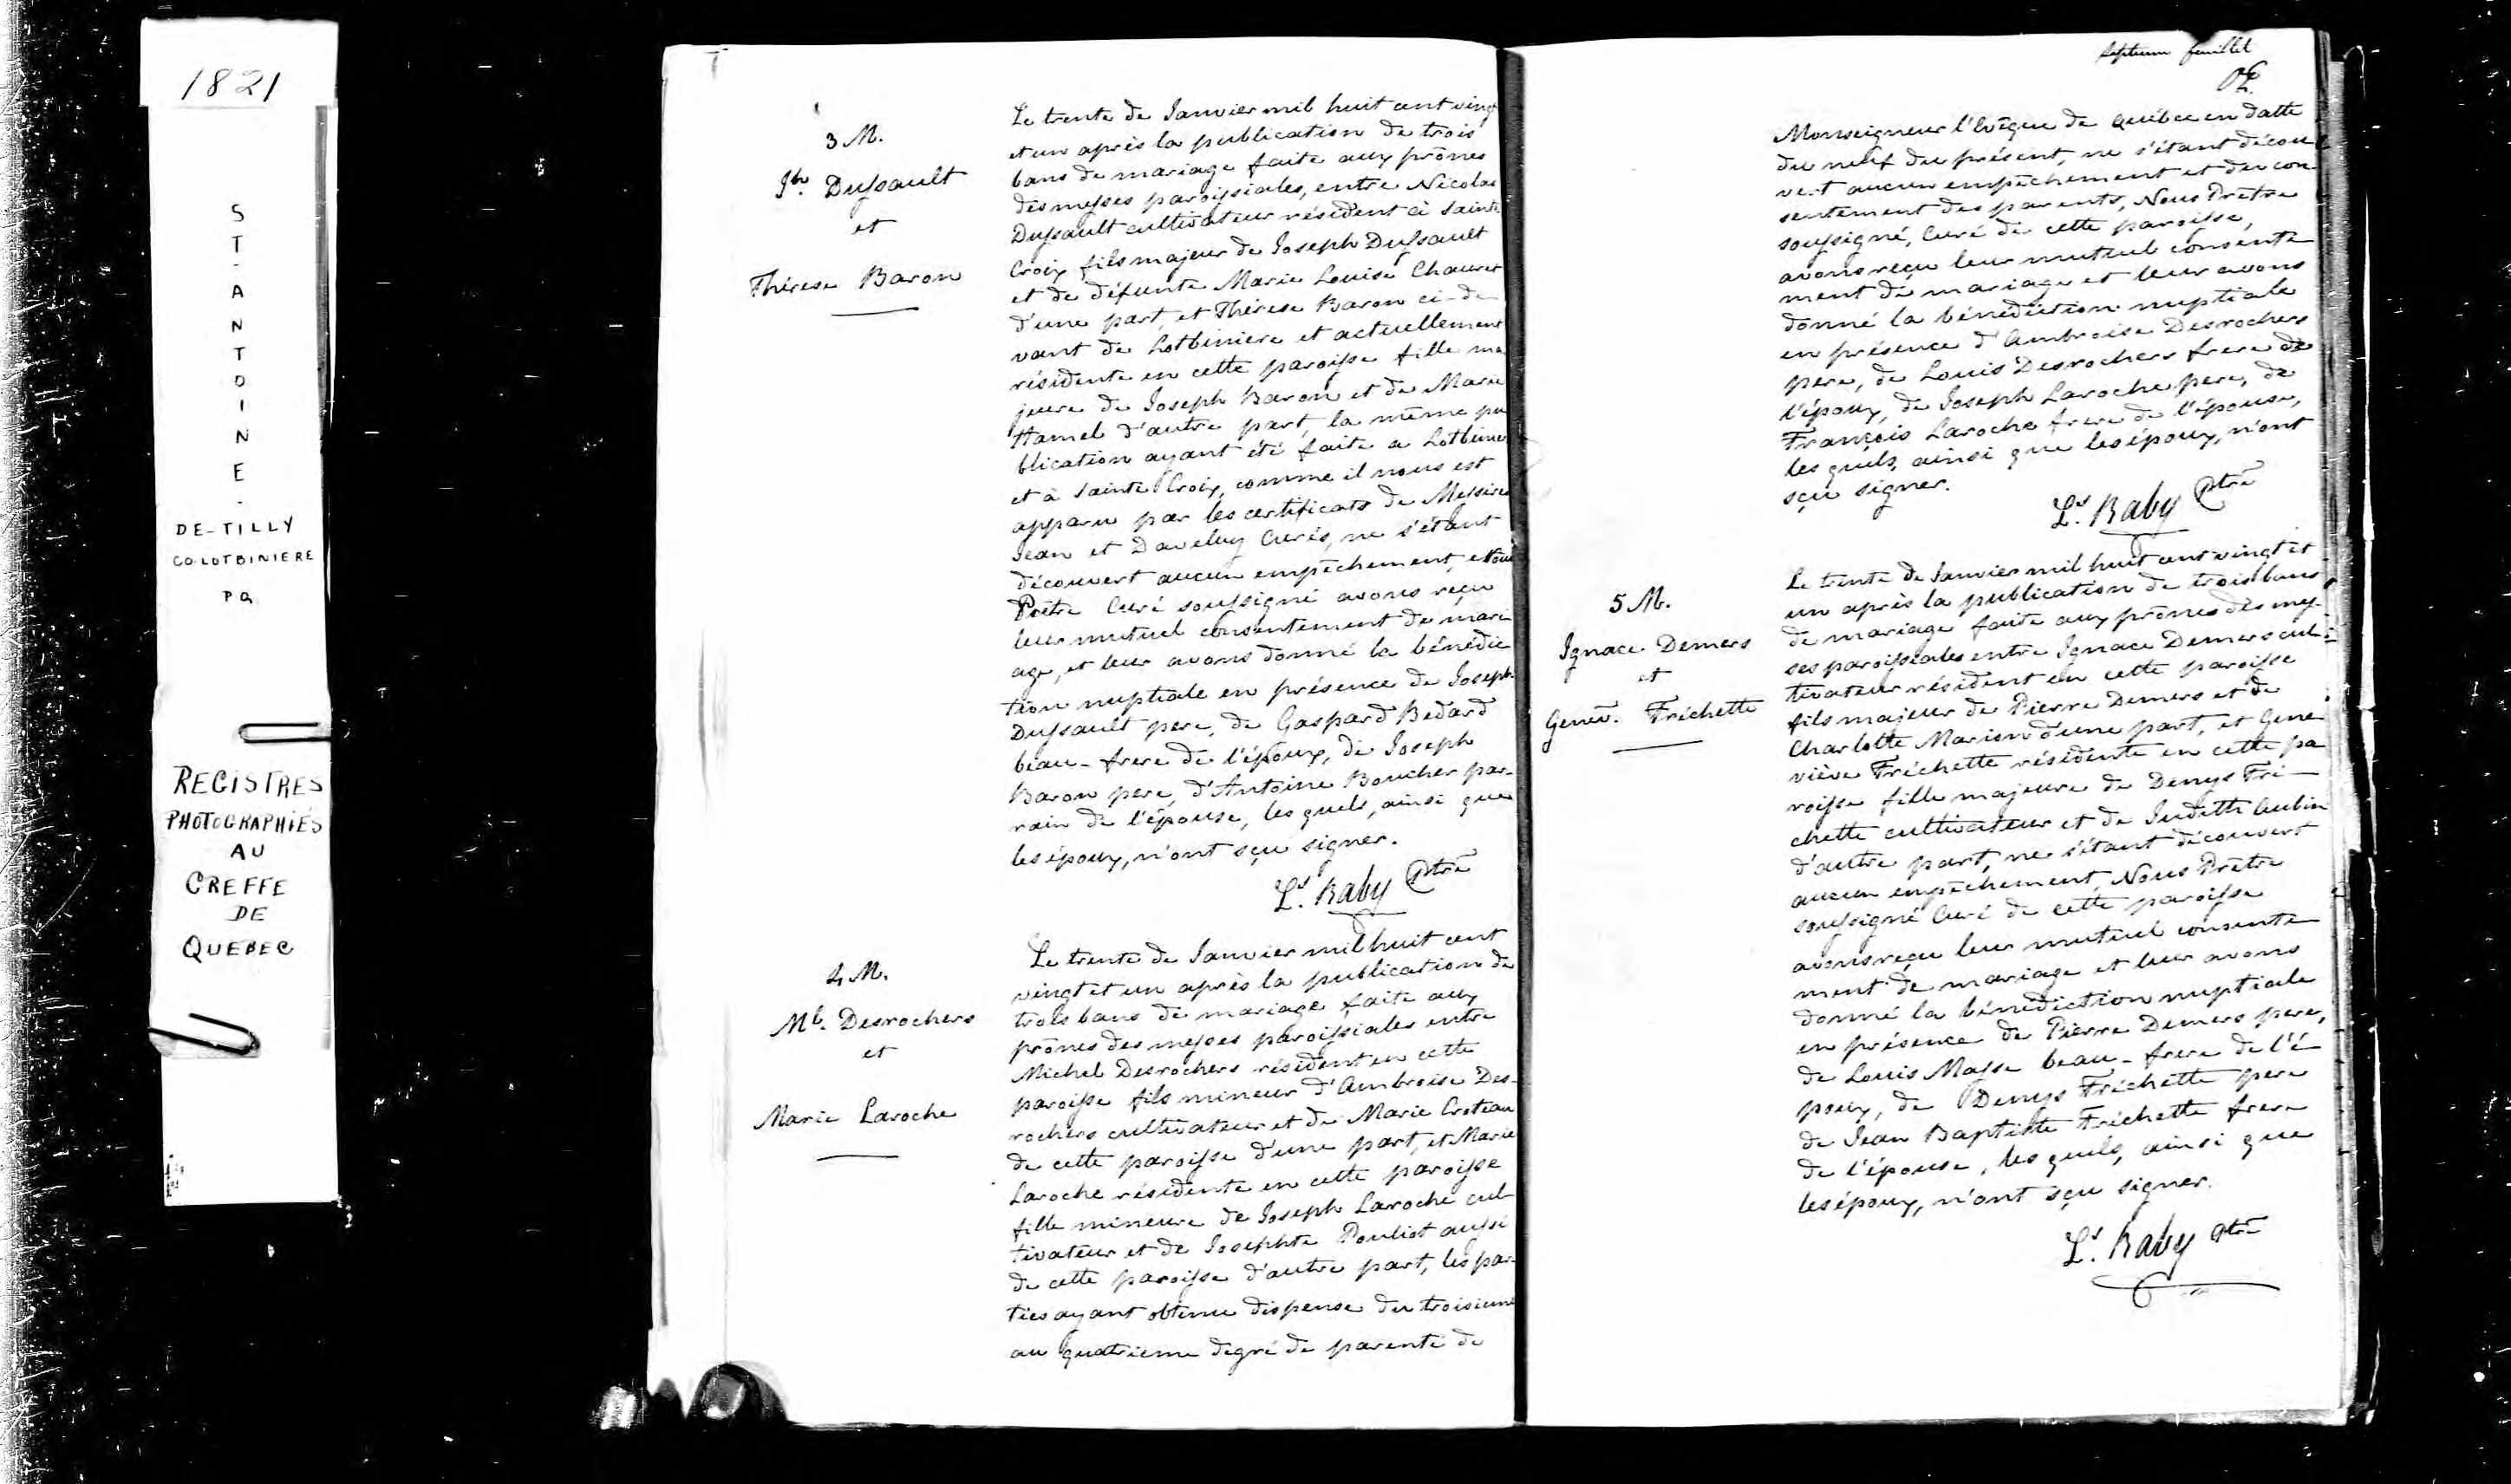 1821
ST-ANTOINE-
DE-TILLY
CO-LOTBINIERE
PQ
REGISTRES
PHOTOGRAPHIÉS
AU
GREFFE
DE
QUEBEC
3 M.
Jh. Dussault
et
Thérese Baron
Le trente de Janvier mil huit cent vingt
et un après la publication de trois
bans de mariage faite aux prônes
des messes paroissiales, entre Nicolas
Dussault cultivateur résident à Sainte
Croix fils majeur de Joseph Dussault
et de défunte Marie Louise Chauret
d'une part, et Thérese Baron ci-de
vant de Lotbiniere et actuellement
résidente en cette paroisse fille ma
jeure de Joseph Baron et de Marie
Hamel d'autre part, la même pu
blication ayant été faite a Lotbinie
et à Sainte Croix, comme il nous est
apparu par les certificats de Messires
Jean et Daveluy Curés, ne s'étant
découvert aucun empêchement, Nous
Prêtre Curé soussigné avons reçu
leur mutuel consentement de mari
age, et leur avons donné la bénédic
tion nuptiale en présence de Joseph
Dussault pere, de Gaspard Bedard
beau-frere de l'époux, de Joseph
Baron pere, d'Antoine Boucher par-
rain de l'épouse, les quels, ainsi que
les époux, n'ont sçu signer.
Ls. Baby Ptre
4 M.
Ml. Desrochers
et
Marie Laroche
Le trente de Janvier mil huit cent
vingt et un après la publication de
trois bans de mariage faite aux
prônes des messes paroissiales entre
Michel Desrochers résident en cette
paroisse fils mineur d'Ambroise Des-
rochers cultivateur et de Marie Croteau
de cette paroisse d'une part, et Marie
Laroche résidente en cette paroisse
fille mineure de Joseph Laroche cul-
tivateur et de Josephte Pouliot aussi
de cette paroisse d'autre part, les par-
ties ayant obtenu dispense du troisieme
au quatrieme degré de parenté de
septieme feuillet
Monseigneur l'Evêque de Québec en datte
du neuf du présent, ne s'étant décou
vert aucun empêchement et du con-
sentement des parents, Nous Prêtre
soussigné, Curé de cette paroisse,
avons reçu leur mutuel consente
ment de mariage et leur avons
donné la bénédiction nuptiale
en présence d'Ambroise Desrochers
pere, de Louis Desrochers frere de
l'époux, de Joseph Laroche pere, de
François Laroche frere de l'épouse,
les quels, ainsi que les époux, n'ont
sçu signer.
Ls. Baby Ptre
5 M.
Ignace Demers
et
Genev. Fréchette
Le trente de Janvier mil huit cent vingt et
un après la publication de trois bans
de mariage faite aux prônes des mes-
ses paroissiales entre Ignace Demers cul-
tivateur résident en cette paroisse
fils majeur de Pierre Demers et de
Charlotte Marion d'une part, et Gene
viève Fréchette résidente en cette pa
roisse fille majeure de Denys Fré-
chette cultivateur et de Judith Aubin
d'autre part, ne s'étant découvert
aucun empêchement, Nous Prêtre
soussigné Curé de cette paroisse
avons reçu leur mutuel consente
ment de mariage et leur avons
donné la bénédiction nuptiale
en présence de Pierre Demers pere,
de Louis Masse beau-frere de l'é
poux, de Denys Fréchette pere
de Jean Baptiste Fréchette frere
de l'épouse, les quels, ainsi que
les époux, n'ont sçu signer.
Ls. Baby Ptre